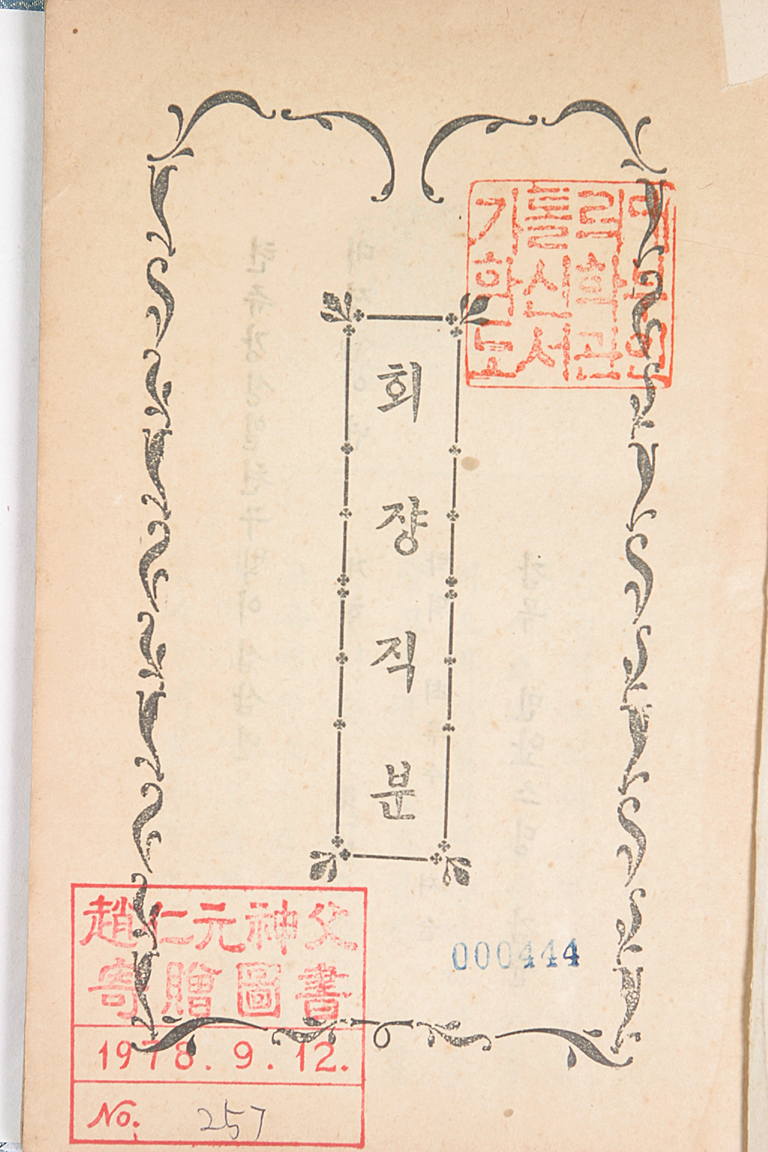 가톨릭대
학신학부
도서관인
회쟝직분
000444
趙仁元神父
寄贈圖書
1978. 9. 12.
No. 257